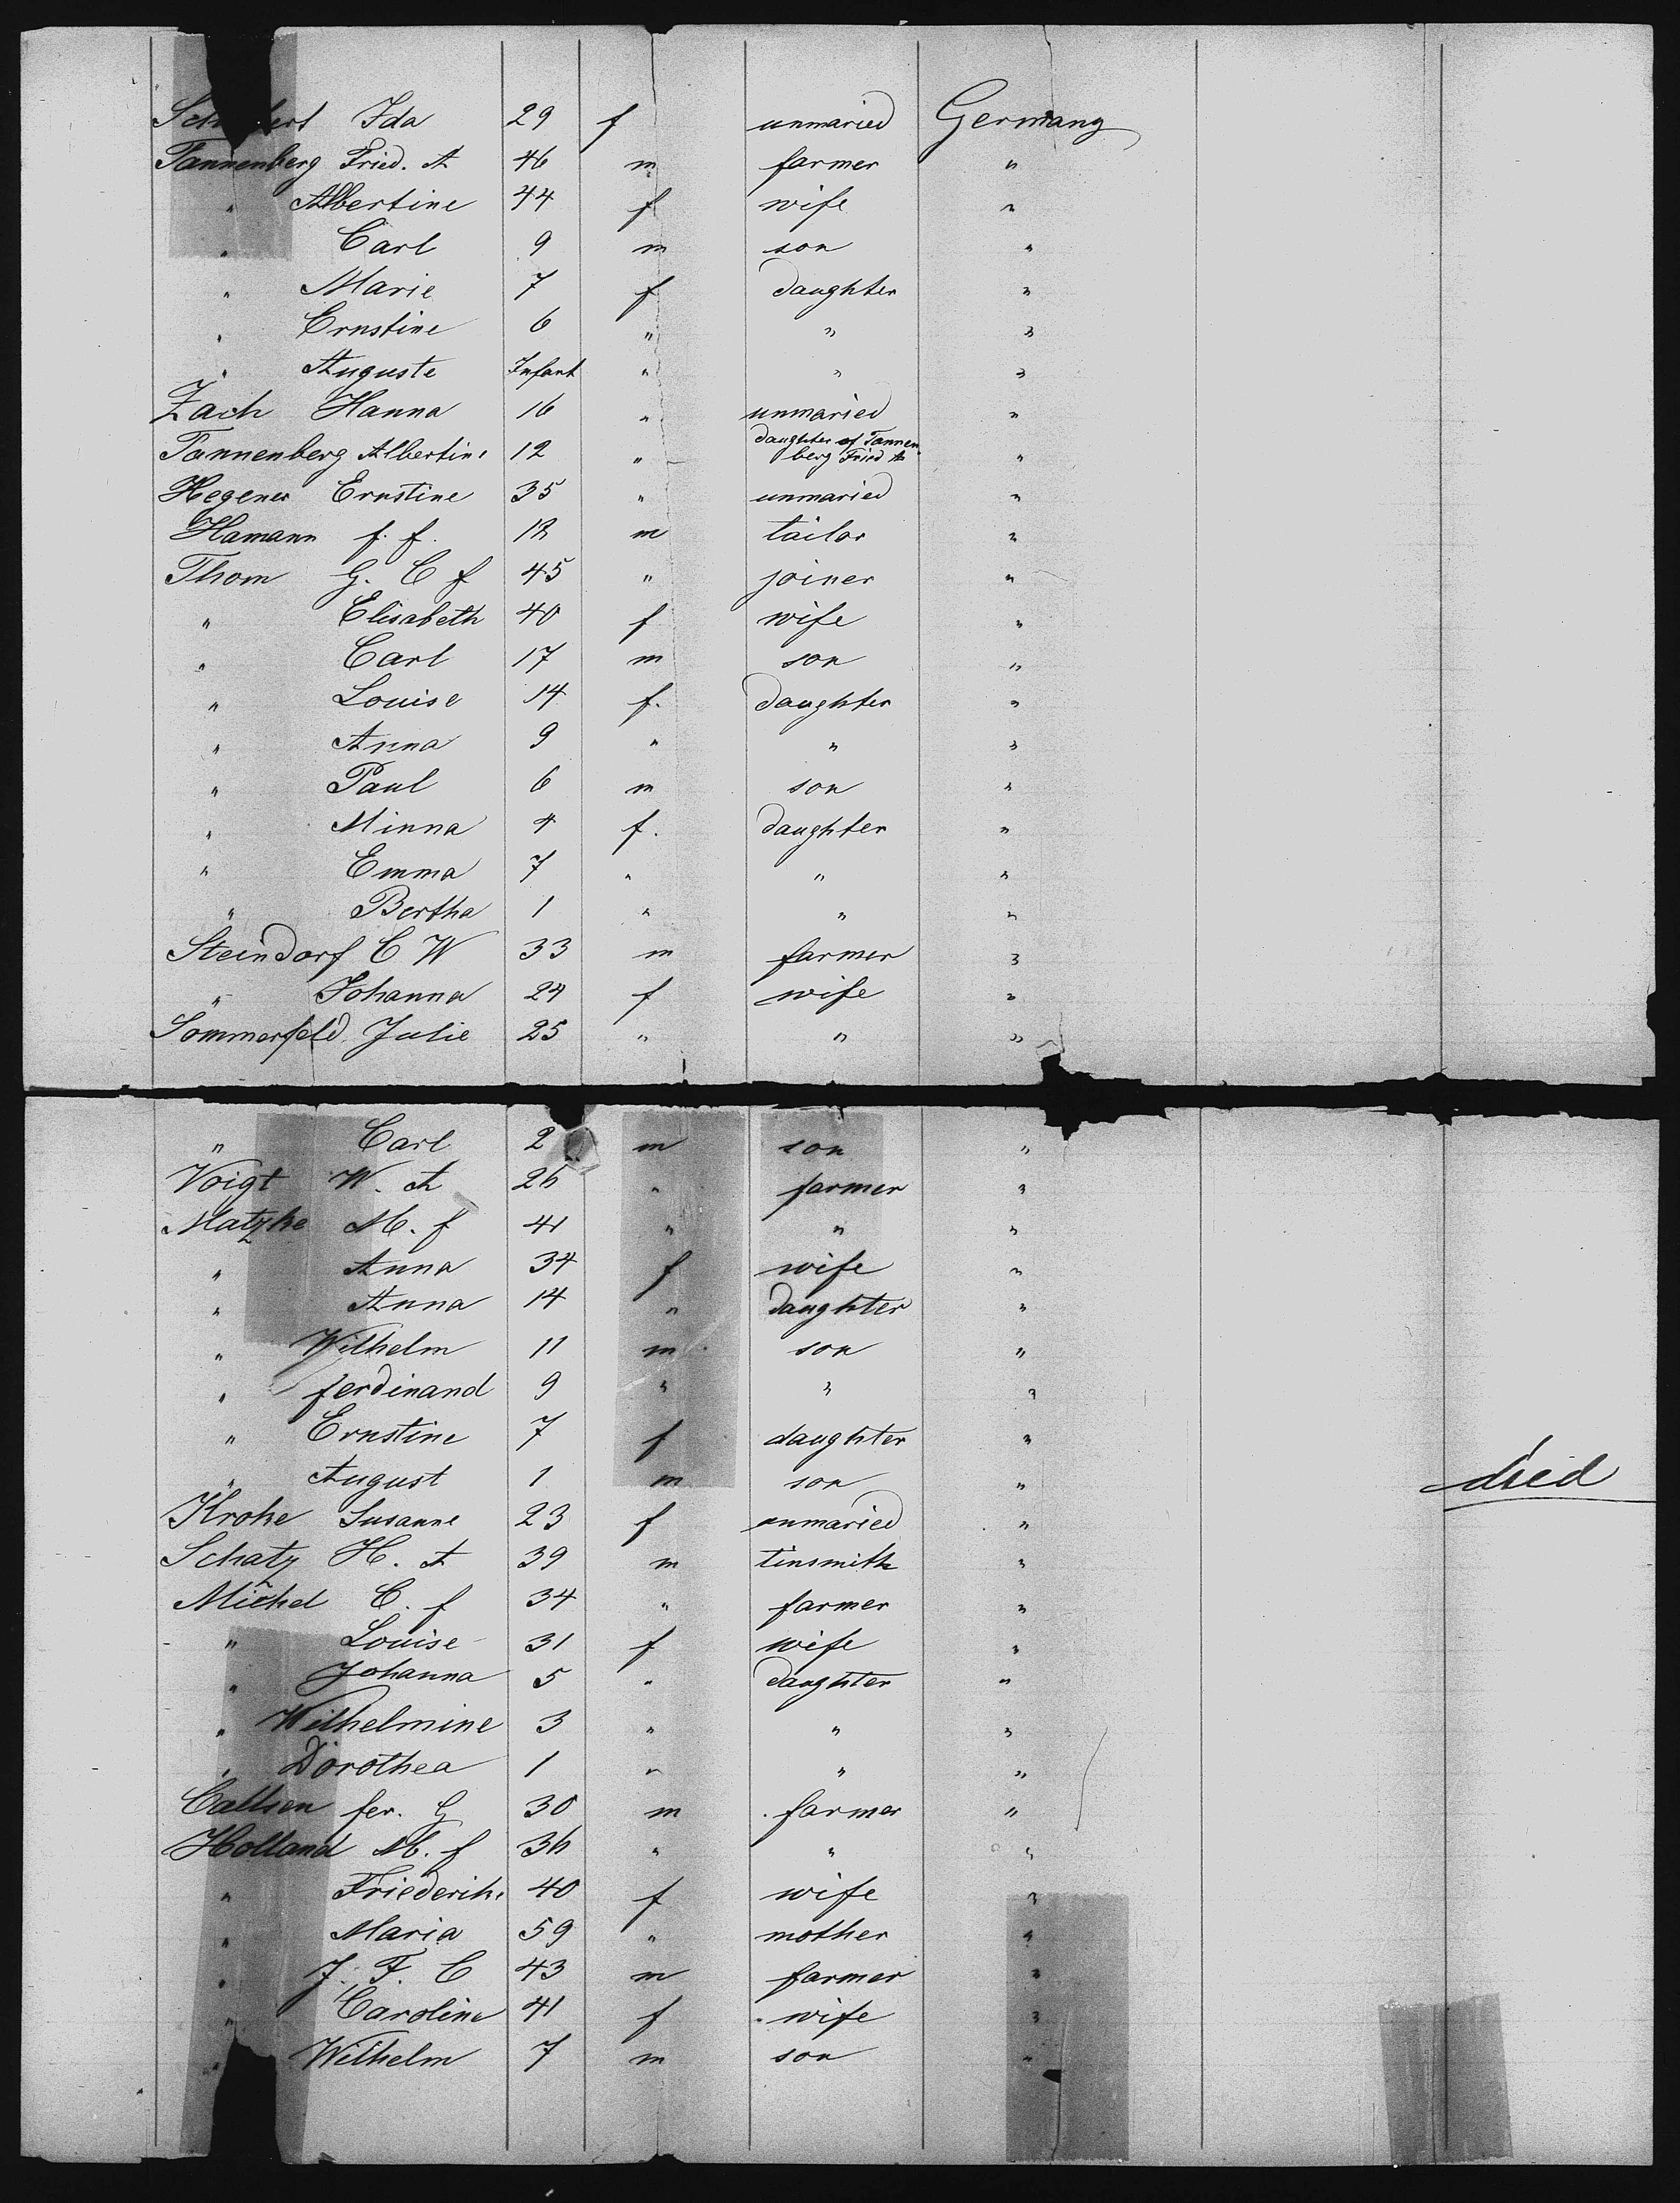 Ida 29 f unmaried Germany
Tannenberg Fried. A 46 m farmer "
" Albertine 44 f wife "
" Carl 9 m son "
" Marie 7 f daughter "
" Ernstine 6 " " "
" Auguste Infant " " "
Zach Hanna 16 " unmaried "
Tannenberg Albertine 12 " daughter of Tannen
berg Fried A "
Hegener Ernstine 35 " unmaried "
Hamann f. f. m tailor "
Thom G. C f 45 " joiner "
" Elisabeth 40 f wife "
" Carl 17 m son "
" Louise 14 f. daughter "
" Anna 9 " " "
" Paul 6 m son "
" Minna 4 f. daughter "
" Emma 7 " " "
" Bertha 1 " " "
Steindorf C W 33 m farmer "
" Johanna 24 f wife "
Sommerfeld Julie 25 " " "
" Carl 2 m son "
Voigt W. A 26 " farmer "
Matzke M. f 41 " " "
" Anna 34 f wife "
" Anna 14 " daughter "
" Wilhelm 11 m son "
" ferdinand 9 " " "
" Ernstine 7 f daughter "
" August 1 m son " died
Krohe Susanne 23 f unmaried "
Schatz H. A 39 m tinsmith "
Michel C. f 34 " farmer "
" Louise 31 f wife "
" Johanna 5 " daughter "
" Wilhelmine 3 " " "
" Dorothea 1 " " "
Callsen fer. G 30 m farmer "
Holland M. f 36 " " "
" Friederike 40 f wife "
" Maria 59 " mother "
" J. F. C 43 m farmer "
" Caroline 41 f wife "
" Wilhelm 7 m son "